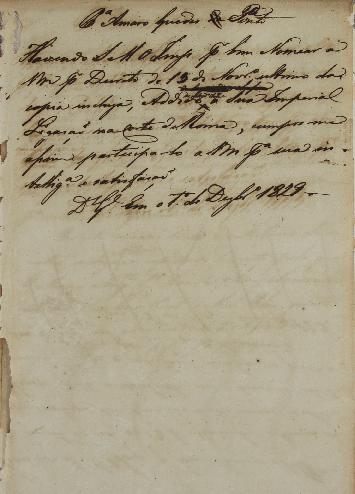 Pª Amaro Guedes da Sª Pinto
Havendo S M O Imp. pr bem Nomear a
Vm pr Decreto de 15 de Novrº ultimo da
copia incluza, Addido á Sua Imperial
Legação na Corte de Roma, cumpre me
assim participa-lo a Vm pª sua in-
telligª e satisfação
Ds Gde Em o 1º de Dezbrº 1829